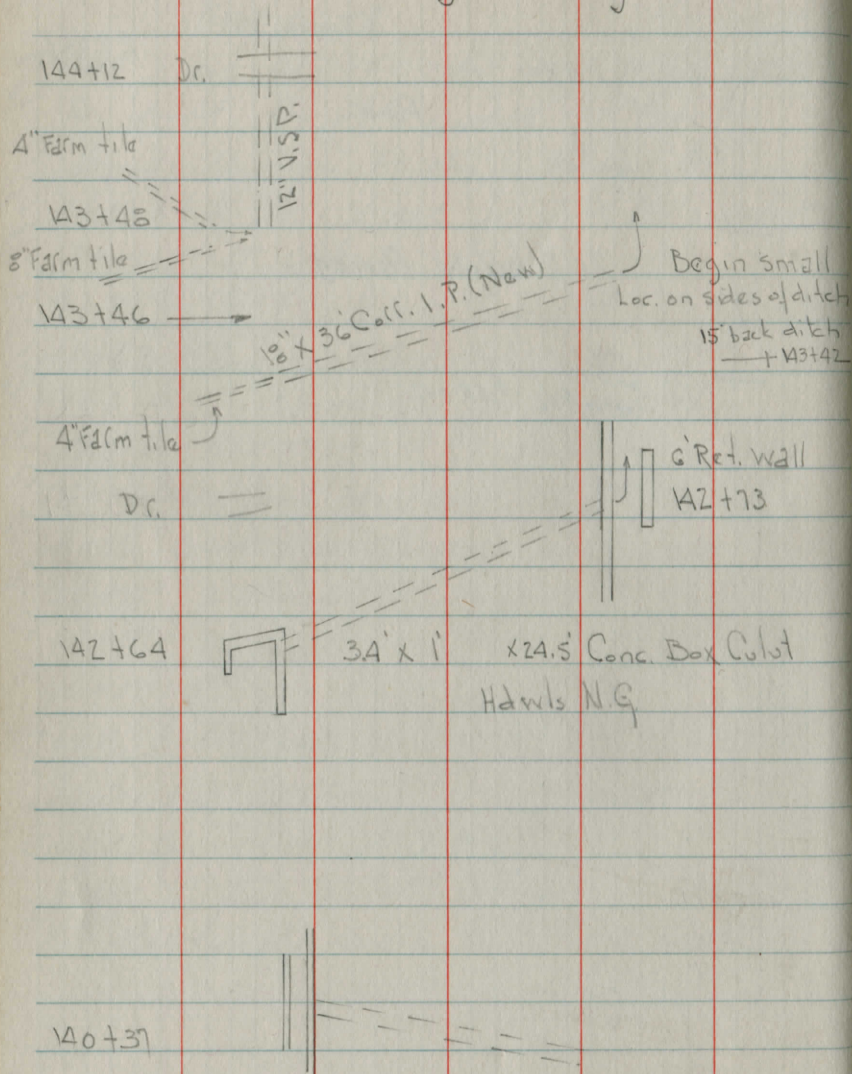 144+12 Dr.
4" Farm tile
12" V.S.P.
143+48
8" Farm tile
143+46
18" x 36' Corr. I.P. (New)
Begin small
Loc. on sides of ditch
15' back ditch
143+42
4" Farm tile
6' Ret. wall
Dr.
142+73
142+64 3.4' x 1' x24.5' Conc. Box Culvt
Hdwls N.G.
140+37